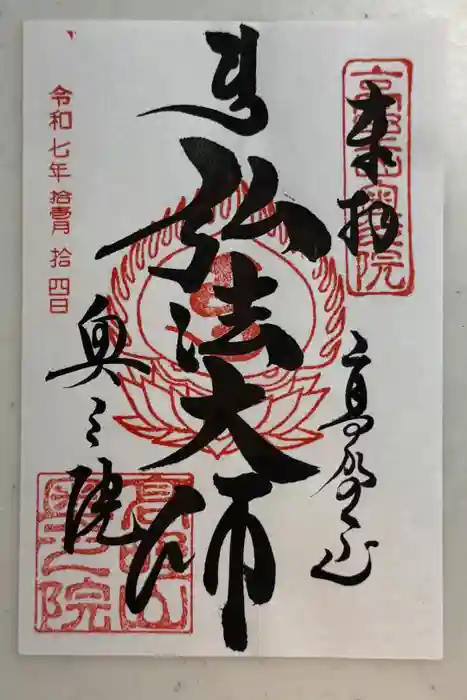 奉拝
高野山
弘法大師
奥之院
令和七年 拾壹月 拾四日
高野山奥之院
高野山
奥之院